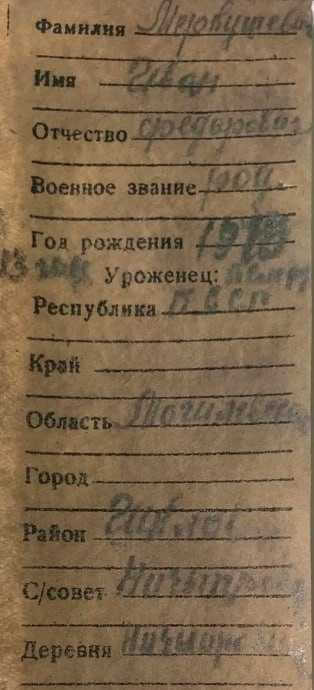 Фамилия Меркушев
Имя Иван
Отчество Федорович
Военное звание ряд.
Год рождения 1913
13 году Уроженец:
Республика БССР
Край
Область Могилевская
Город
Район Шклов
С/совет
Деревня